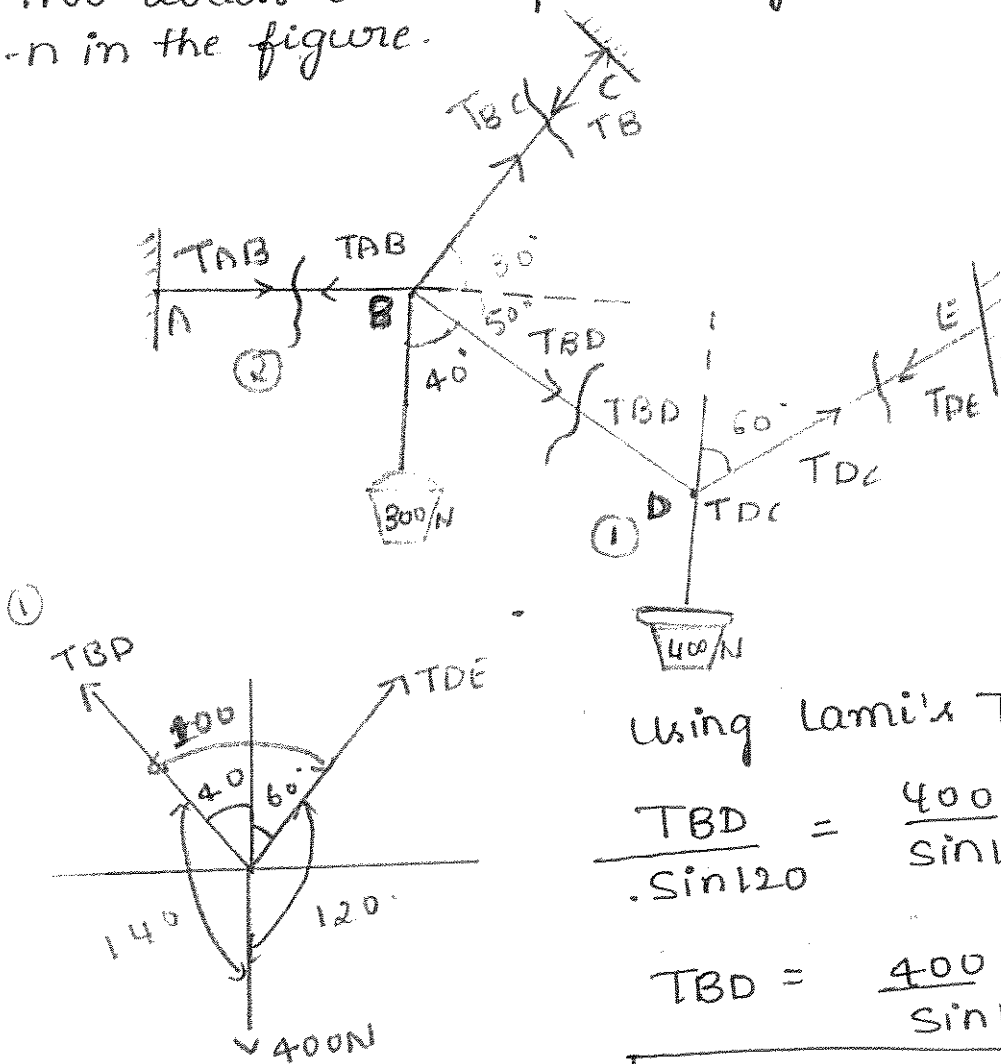 -n in the figure.
C
TBC
TB
TAB TAB 30°
A B 50° E
② 40° TBD
TBD 60° TDE
300/N D TDC
① TDC
①
400/N
TBD TDE
100
40 60°
140 120.
400N
Using Lami's T
TBD = 400
.Sin120 Sin1
TBD = 400
Sin1